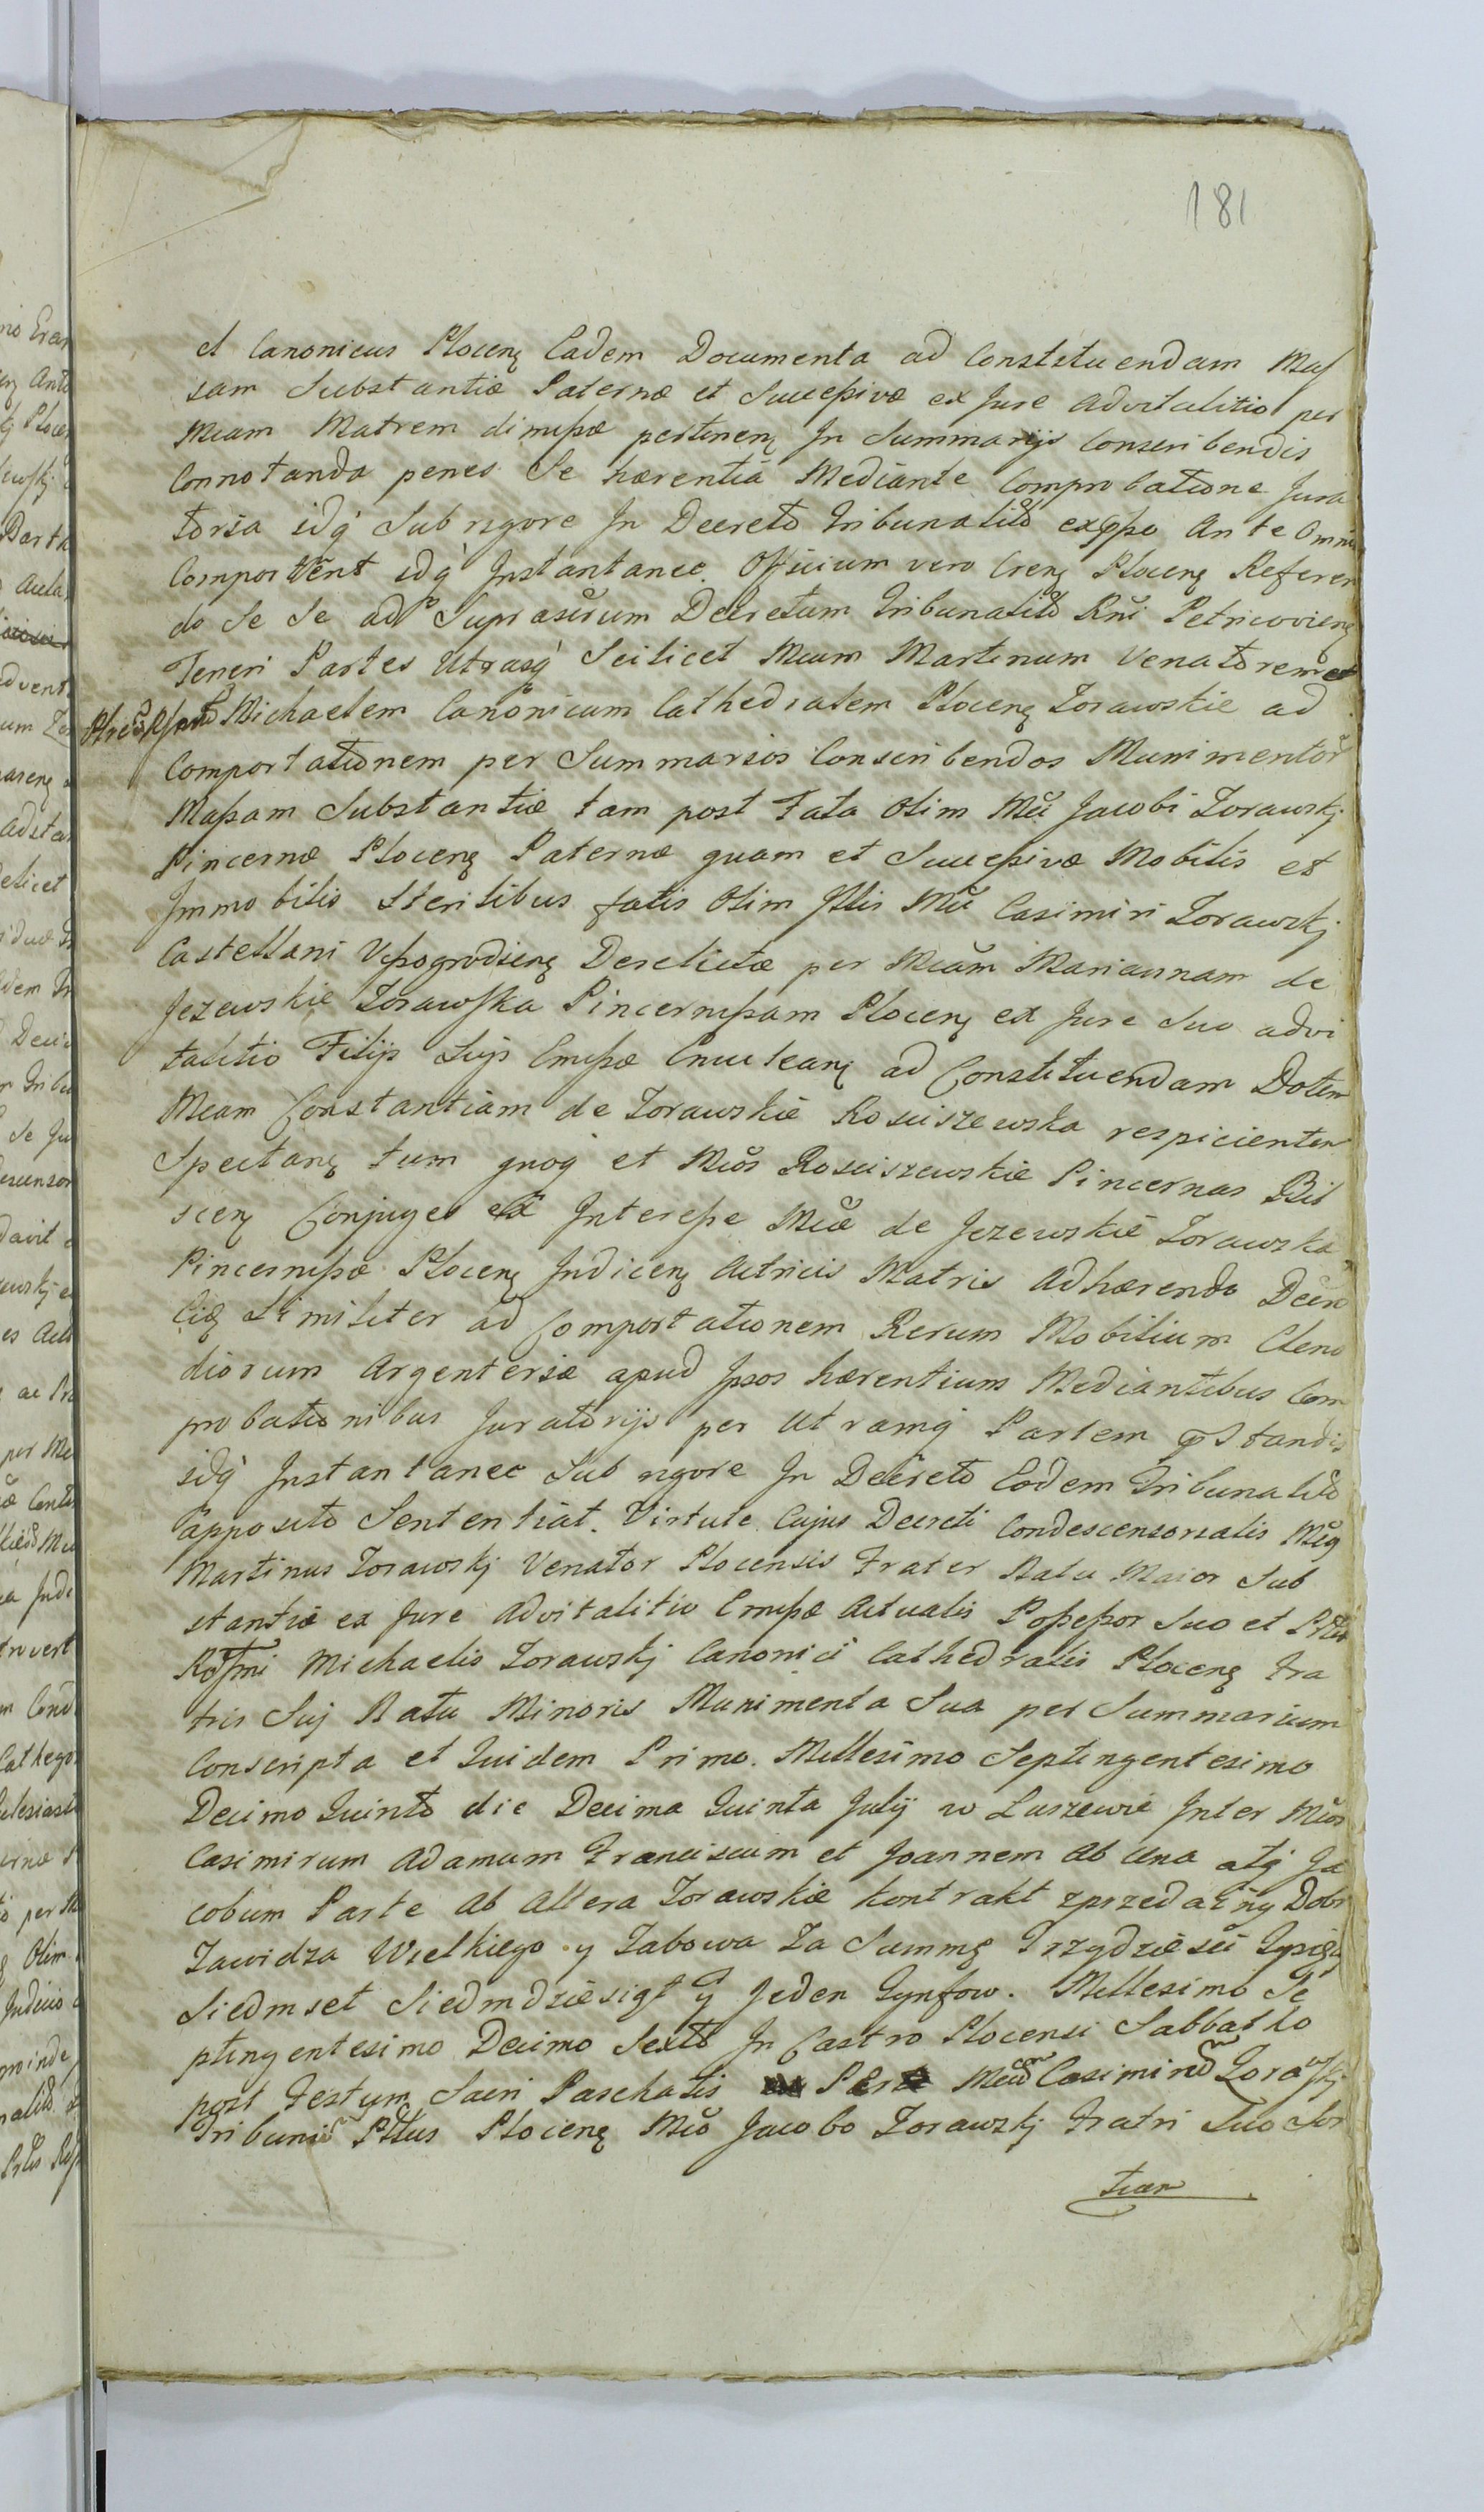 181
et Canonicus Plocen̨ Eadem Documenta ad Constituendam Mas
sam Substantiæ Paternæ et Successivæ ex Jure advitalitio per
Mcam Matrem dimissæ pertinen̨ In Summarijs Conscribendis
Connotanda penes Se hærentia Mediante Comprobatione Jura
toria idq́ Sub rigore In Decreto Tribunalitio exp̃sso Ante Omnia
Comportent idq́ Instantanee. Officium vero Cren̨ Plocen̨ Referen
do Se Se ad Suprascrum Decretum Tribunalitiũ Rñi Petricovien̨
Teneri Partes Utrasq́ Scilicet Mcum Martinum Venatorem et
Michaelem Canonicum Cathedralem Plocen̨ Zorawskie ad
Comportationem per Summarios Conscribendos Munimentor̃
Massam Substantiæ tam post Fata Olim Mci Jacobi Zorawskj
Pincernæ Plocen̨ Paternæ quam et Successivæ Mobilis et
Immobilis Sterilibus fatis Olim Illis Mci Casimiri Zorawskj
Castellani Vyssogrodien̨ Derelictæ per Mcam Mariannam de
Jezewskie Zorawska Pincernissam Plocen̨ ex Jure Suo advi
talitio Filijs Suis Emissæ Enuclean̨ ad Constituendam Dotem
Mcam Constantiam de Zorawskie Rosciszewska respicientem
Spectan̨ tum quoq́ et Mcos Rosciszewskie Pincernas Biel
scen̨ Conjuges ex Interesse Mcæ de Jezewskie Zorawska
Pincernissæ Plocen̨ Indicen̨ Actricis Matris Adhærendo
Similiter ad Comportationem Rerum Mobilium Cleno
diorum Argenteriæ apud Ipsos hærentium Mediantibus Com
probationibus Juratorijs per Utramq́ Partem p̃standis
idq́ Instantanee Sub rigore In Decreto Eodem Tribunalitio
apposito Sententiat. Virtute Cujus Decreti Condescensorialis Mcus
Martinus Zorawskj Venator Plocensis Frater Natu Maior Sub
stantiæ ex Jure Advitalitio Emissæ Actualis Possessor Suo et
Michaelis Zorawskj Canonici Cathedralis Plocen̨ Fra
tris Suj Natu Minoris Munimenta Sua per Summarium
Conscripta et Quidem Primo. Millesimo Septingentesimo
Decimo Quinto die Decima Quinta Julij w Luszewie Inter Mcos
Casimirum Adamum Franciscum et Joannem ab Una atq́ Ja
cobum Parte ab Altera Zorawskie kontrakt zprzedażny Dobr
Zawidza Wielkiego y Zabowa Za Summę Trzydzieści Tysięcy
Siedmset Siedmdziesiąt y Jeden Tynfow. Millesimo Se
ptingentesimo Decimo Sexto In Castro Plocensi Sabbatho
post Festum Sacri Paschatis Casimirus Zorawskj
Tribunus Plocen̨ Mco Jacobo Zorawskj Fratri Suo Sor
tian